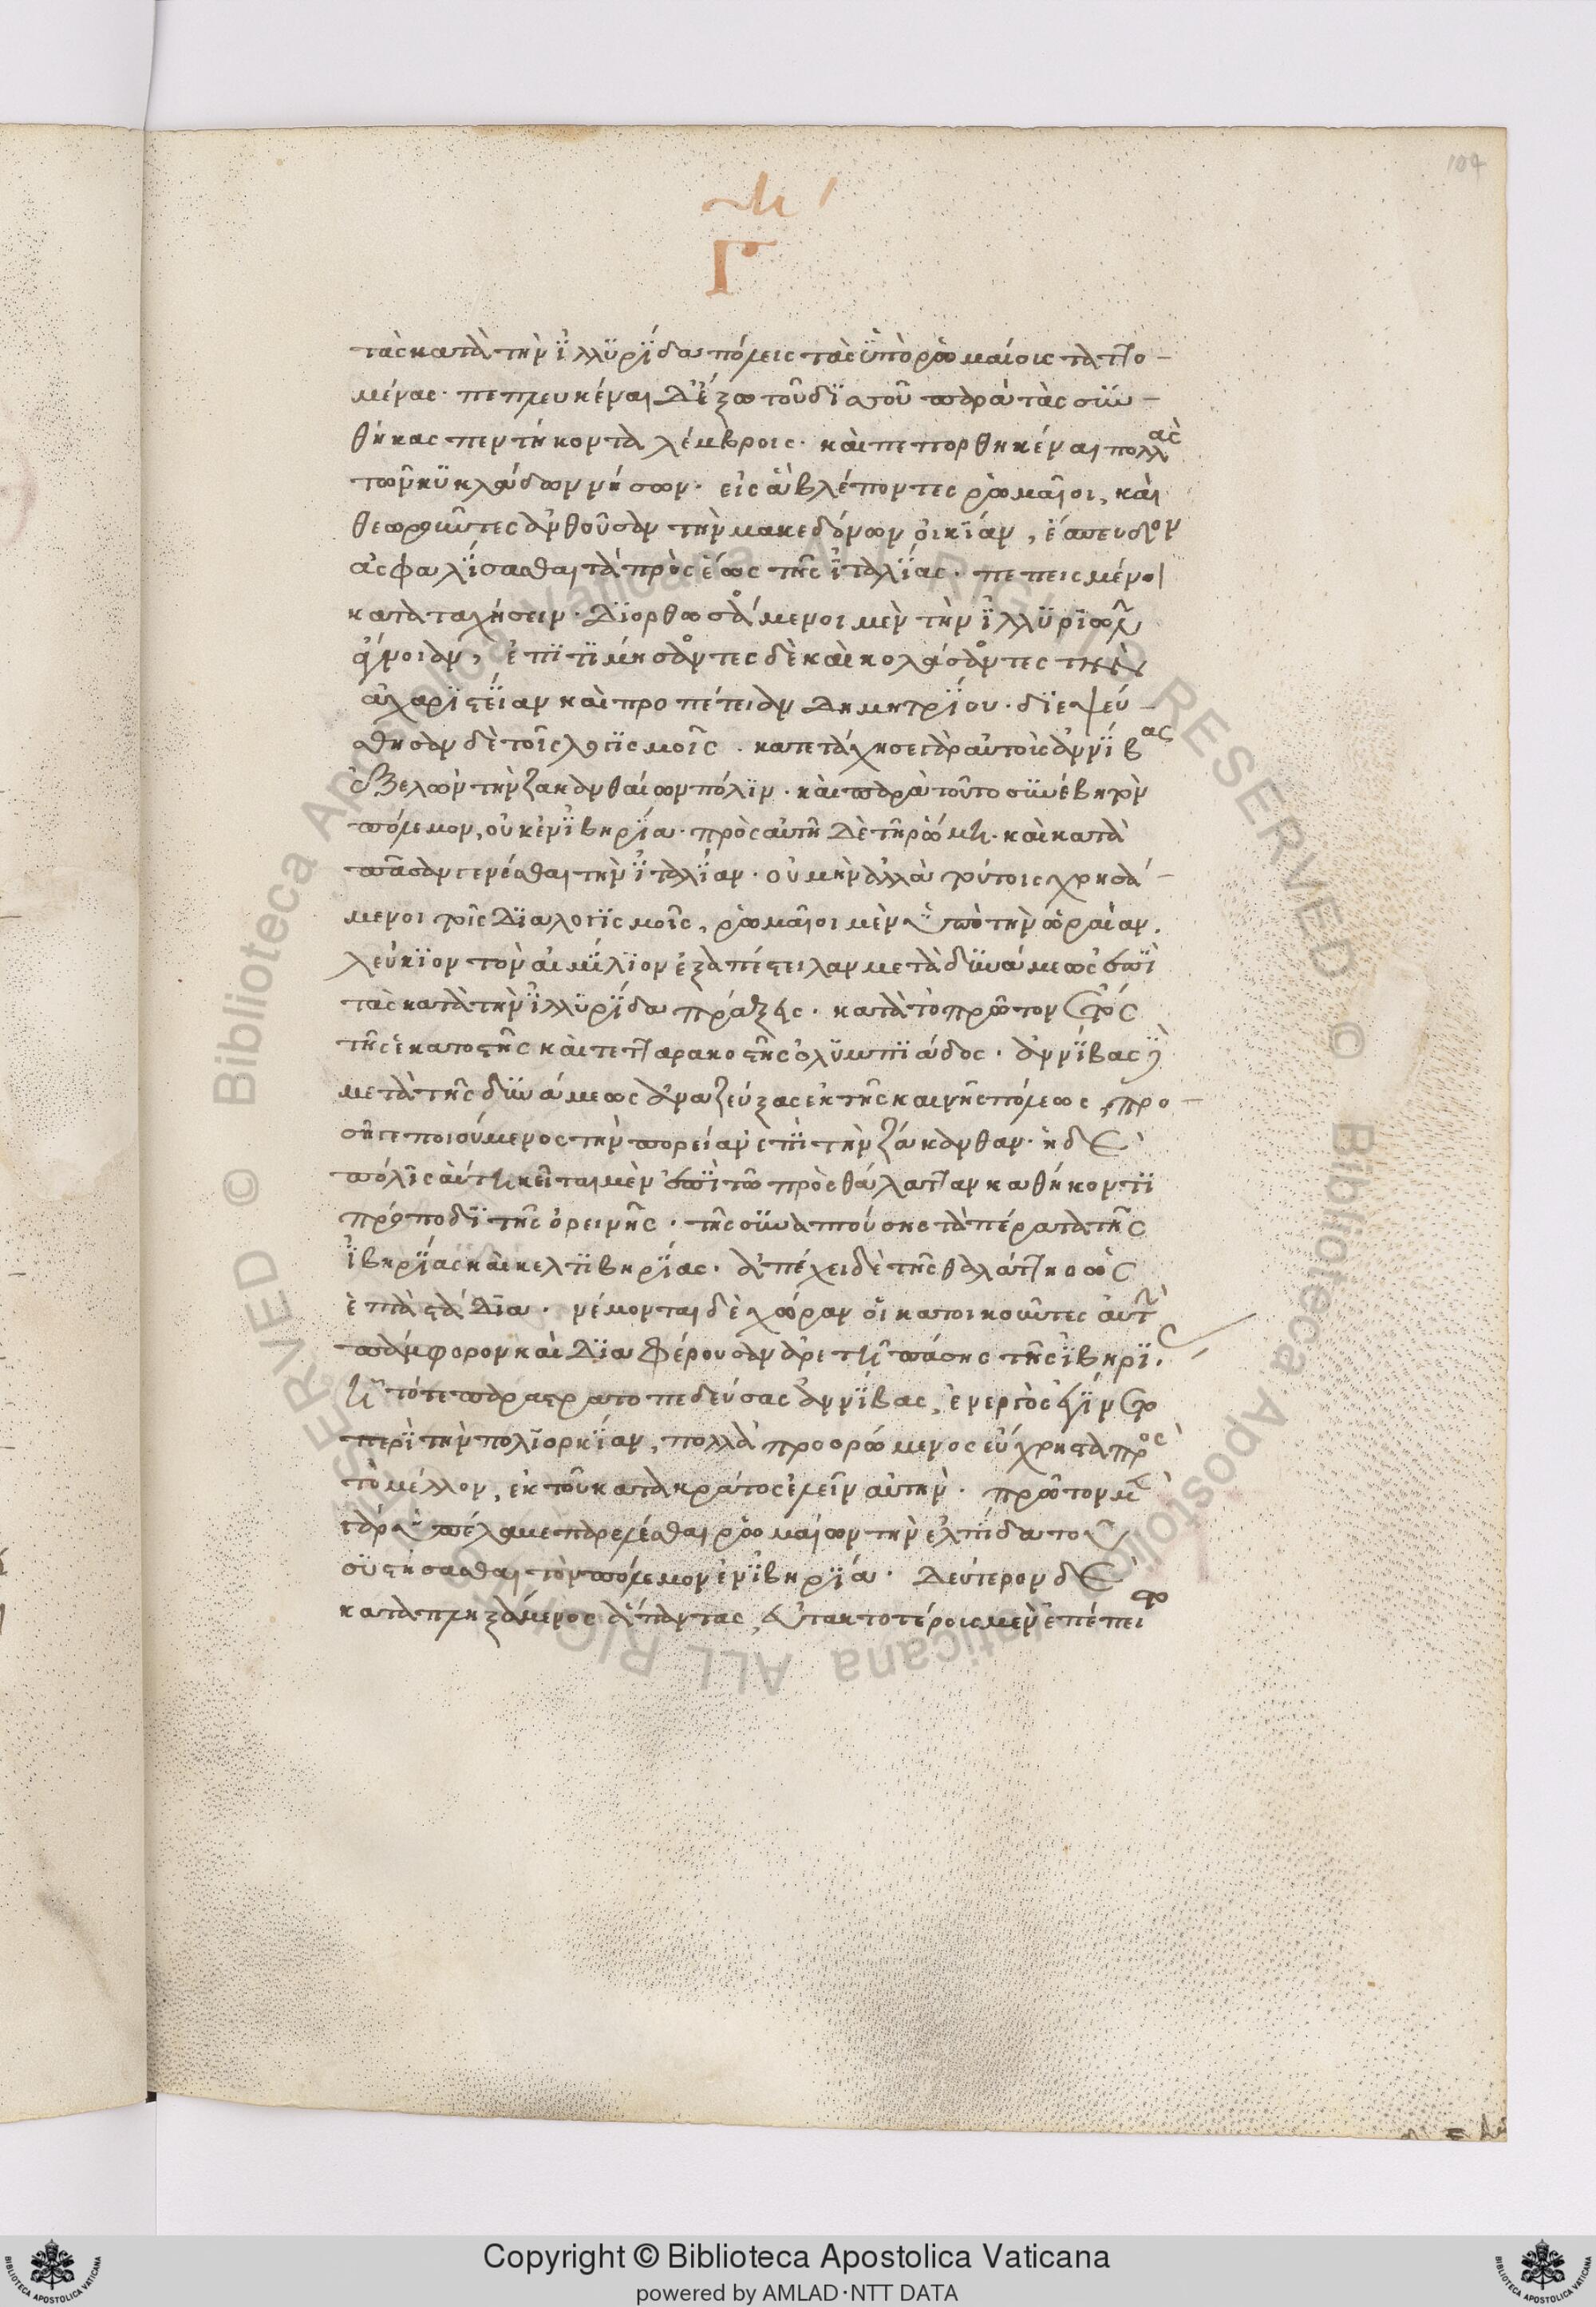 104
Γ
τὰς κατὰ τὴν ἰλλυρίδα πόλεις τὰς ὑπὸ ῥωμαίοις ταττο-
μένας· πεπλευκέναι δ' ἔξω τοῦ δίσσου παρὰ τὰς συν-
θήκας πεντήκοντα λέμβοις· καὶ πεπορθηκέναι πολλὰς
τῶν κυκλάδων νήσων· εἰς ἃ βλέποντες ῥωμαῖοι, καὶ
θεωροῦντες ἀνθοῦσαν τὴν μακεδόνων οἰκίαν, ἔσπευδον
ἀσφαλίσασθαι τὰ πρὸς ἕως τῆς ἰταλίας· πεπεισμένοι
καταταχήσειν· διορθωσάμενοι μὲν τὴν ἰλλυριῶν
ἄνοιαν, ἐπιτιμήσαντες δὲ καὶ κολάσαντες τὴν
ἀχαριστείαν καὶ προπέτειαν δημητρίου· διεψεύ-
σθησαν δὲ τοῖς λογισμοῖς· κατετάχησε γὰρ αὐτοὺς ἀννίβας
ἐξελὼν τὴν ζακανθαίων πόλιν· καὶ παρὰ τοῦτο συνέβη τὸν
πόλεμον, οὐκ ἐν ἰβηρία· πρὸς αὐτῆ δὲ τῆ ῥώμη· καὶ κατὰ
πᾶσαν γενέσθαι τὴν ἰταλίαν· οὐ μὴν ἀλλὰ τούτοις χρησά-
μενοι τοῖς διαλογισμοῖς, ῥωμαῖοι μὲν ὑπὸ τὴν ὡραίαν.
λεύκιον τὸν αἰμίλιον ἐξαπέστειλαν μετὰ δυνάμεως ἐπὶ
τὰς κατὰ τὴν ἰλλυρίδα πράξεις· κατὰ τὸ πρῶτον ἔτος
τῆς ἑκατοστῆς καὶ τετταρακοστῆς ὀλυμπιάδος· ἀννίβας δὲ
μετὰ τῆς δυνάμεως ἀναζεύξας ἐκ τῆς καινῆς πόλεως, προ-
σῆγε ποιούμενος τὴν πορείαν ἐπὶ τὴν ζάκανθαν· ἡ δὲ
πόλις αὕτη κεῖται μὲν ἐπὶ τῶ πρὸς θάλατταν καθήκοντι
πρόποδι τῆς ὀρεινῆς· τῆς συναπτούσης τὰ πέρατα τῆς
ἰβηρίας καὶ κελτιβηρίας· ἀπέχει δὲ τῆς θαλάττης ὡς
ἑπτὰ στάδια· νέμονται δὲ χώραν οἱ κατοικοῦντες αὐτὴν
πάμφορον καὶ διαφέρουσαν ἀρετῆ πάσης τῆς ἰβηρίας.
ἧ τότε παραστρατοπεδεύσας ἀννίβας, ἐνεργὸς ἐγίνετο
περὶ τὴν πολιορκίαν, πολλὰ προορώμενος εὔχρηστα πρὸς
τὸ μέλλον, ἐκ τοῦ κατὰ κράτος ἑλεῖν αὐτήν· πρῶτον μὲν
γὰρ ὑπέλαβε παρελέσθαι ῥωμαίων τὴν ἐλπίδα τοῦ
συστήσασθαι τὸν πόλεμον ἐν ἰβηρία· δεύτερον δὲ
καταπληξάμενος ἅπαντας, εὐτακτοτέρους μὲν ἐπέπειστο
Copyright © Biblioteca Apostolica Vaticana
powered by AMLAD·NTT DATA